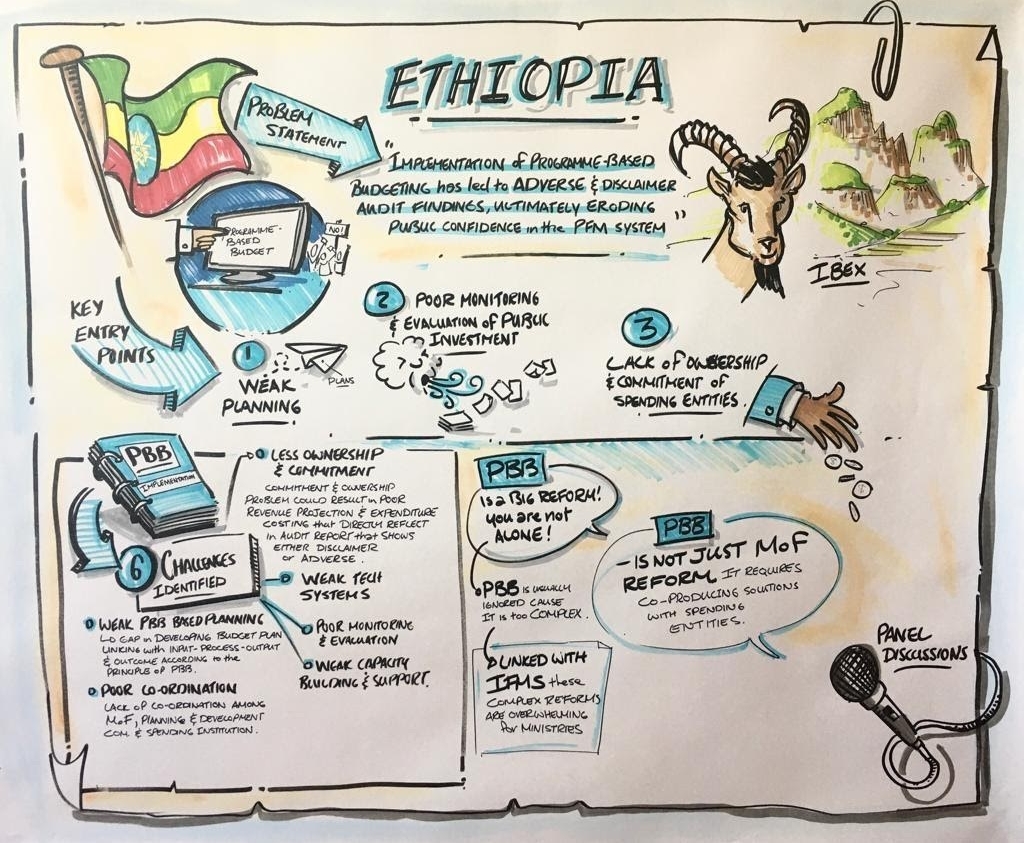 ETHIOPIA
PROBLEM
STATEMENT
"IMPLEMENTATION of PROGRAMME-BASED
BUDGETING has led to ADVERSE & DISCLAIMER
AUDIT FINDINGS, ULTIMATELY ERODING
PUBLIC CONFIDENCE in the PFM SYSTEM"
PROGRAMME-
BASED
BUDGET
NO!
IBEX
KEY
ENTRY
POINTS
1
WEAK
PLANNING
PLANS
2 POOR MONITORING
& EVALUATION of PUBLIC
INVESTMENT
3
LACK of OWNERSHIP
& COMMITMENT of
SPENDING ENTITIES.
PBB
IMPLEMENTATION
6 CHALLENGES
IDENTIFIED
LESS OWNERSHIP
& COMMITMENT
COMMITMENT & OWNERSHIP
PROBLEM COULD RESULT in POOR
REVENUE PROJECTION & EXPENDITURE
COSTING that DIRECTLY REFLECT
in AUDIT REPORT that SHOWS
EITHER DISCLAIMER
or ADVERSE.
WEAK TECH
SYSTEMS
POOR MONITORING
& EVALUATION
WEAK CAPACITY
BUILDING & SUPPORT.
WEAK PBB BASED PLANNING
GAP in DEVELOPING BUDGET PLAN
LINKING with INPUT-PROCESS-OUTPUT
& OUTCOME ACCORDING to the
PRINCIPLE of PBB.
POOR CO-ORDINATION
LACK of CO-ORDINATION AMONG
MoF, PLANNING & DEVELOPMENT
COM. & SPENDING INSTITUTION.
PBB
IS a BIG REFORM!
you are not
ALONE!
PBB IS USUALLY
IGNORED CAUSE
IT IS too COMPLEX.
LINKED WITH
IFMS these
COMPLEX REFORMS
ARE OVERWHELMING
for MINISTRIES
PBB
- IS NOT JUST MoF
REFORM IT REQUIRES
CO-PRODUCING SOLUTIONS
WITH SPENDING
ENTITIES.
PANEL
DISCUSSIONS